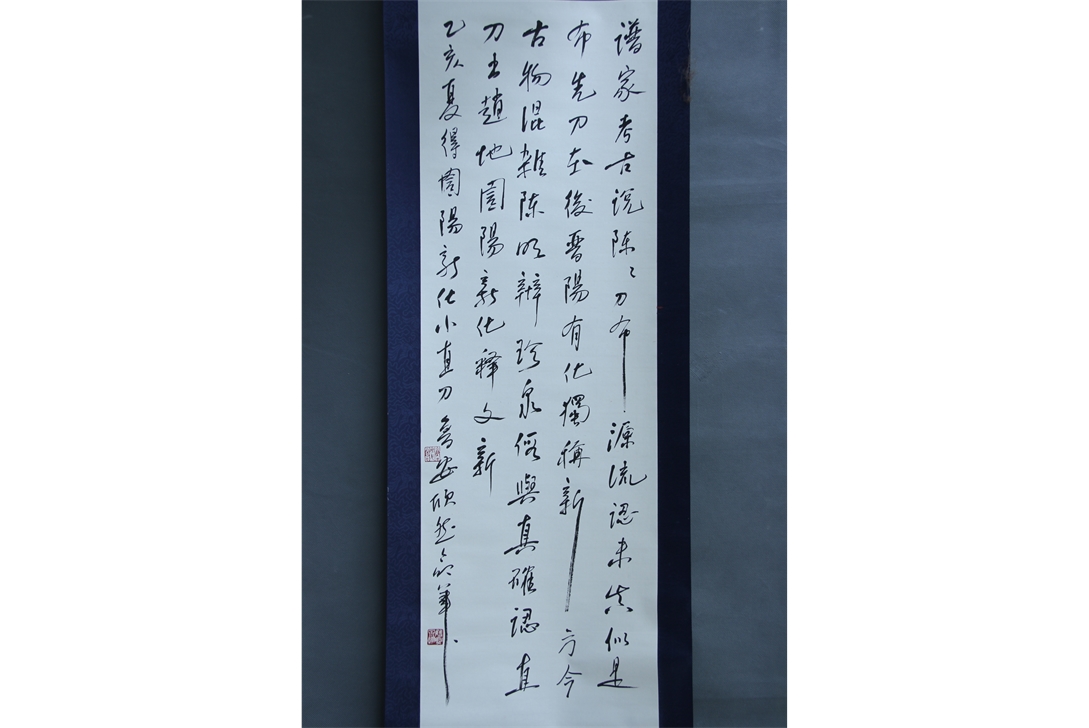 譜家考古说陈〻刀布源流認未真似是
布先刀在後晋陽有化獨稱新方今
古物混雜陈明辨珍泉假與真確認直
刀出趙地圁陽新化释文新
乙亥夏得圁陽新化小直刀晉安欣然命筆